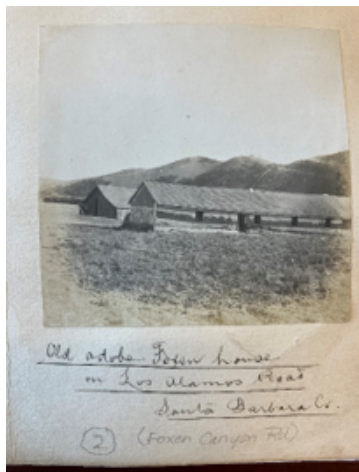 Old adobe Foxen house
on Los Alamos Road
Santa Barbara Co.
2 (Foxen Canyon Rd)